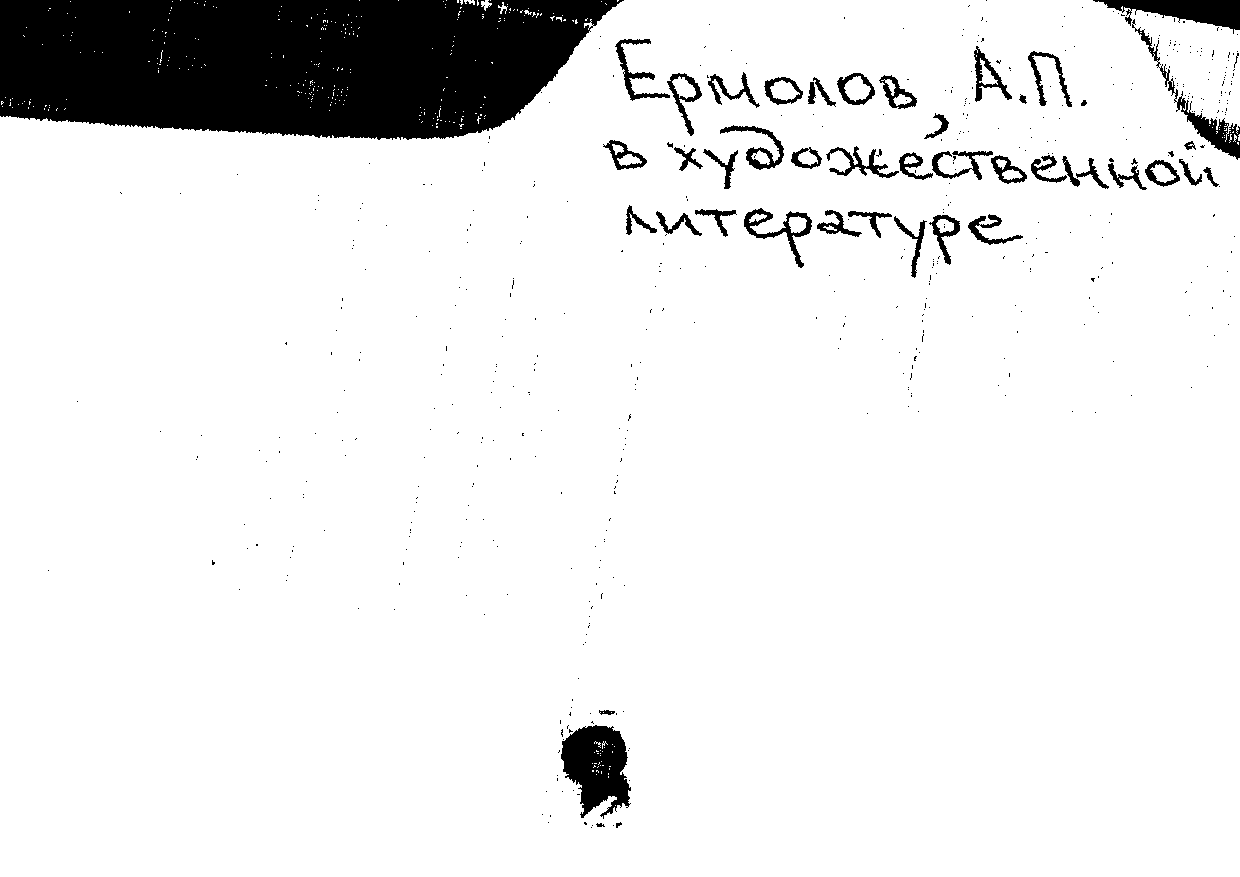 Ермолов, А.П.
в художественной
литературе